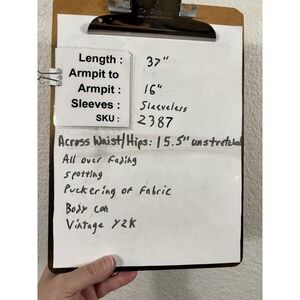 Length : 37"
Armpit to
Armpit : 16"
Sleeves : Sleeveless
SKU : 2387
Across Waist/Hips: 15.5" unstretched
All over fading
Spotting
Puckering of Fabric
Body con
Vintage Y2K